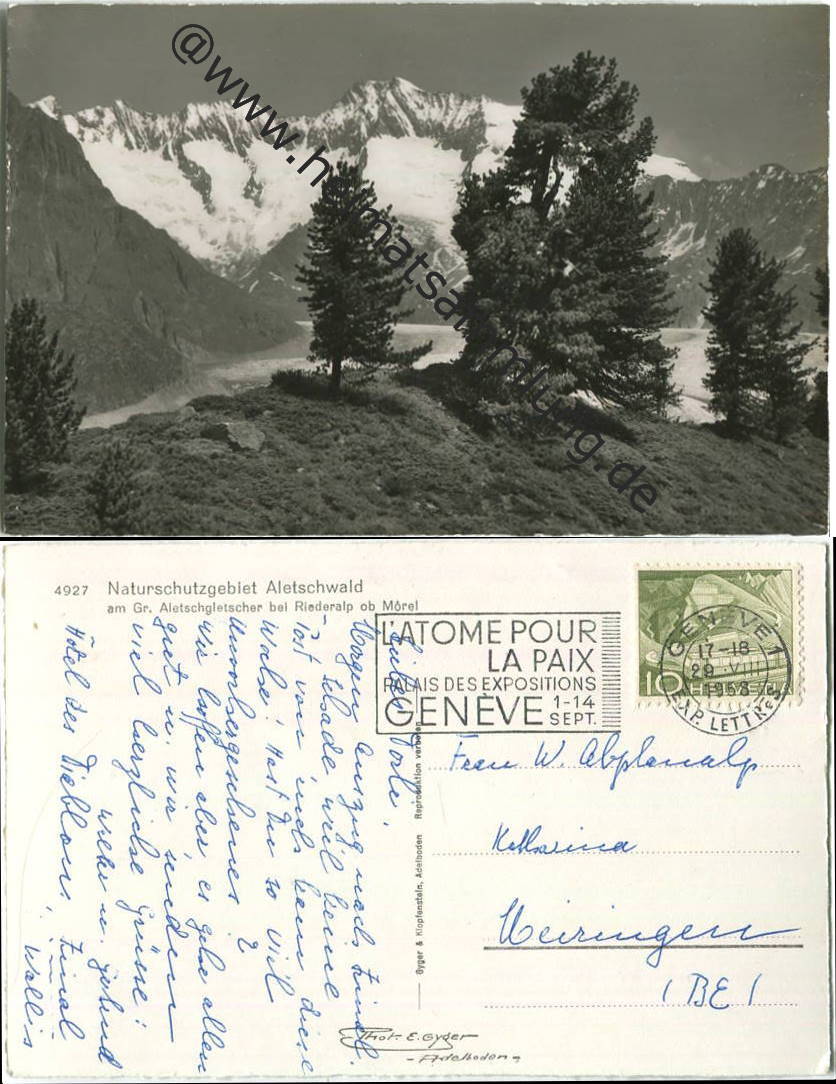 @www.heimatsammlung.de
4927 Naturschutzgebiet Aletschwald
am Gr. Aletschgletscher bei Riederalp ob Mörel
L'ATOME POUR
LA PAIX
PALAIS DES EXPOSITIONS
GENÈVE 1-14
SEPT.
GENÈVE 1
17-18
29.VIII
1958
EXP. LETTRES
10 HELVETIA
Liebes Dorle,
Morgen Auszug nach Zinal.
Schade weil keine
Post von euch kam diese
Woche! Hast Du so viel
Unvorhergesehenes?
Wir hoffen aber, es gehe allen
gut u. wir senden
viel herzliche Grüsse!
Hôtel des Diablons, Zinal
Wallis
Frau W. Abplanalp
Katharina
Meiringen
(BE)
Gyger & Klopfenstein, Adelboden Reproduktion verboten
Phot. E. Gyger
- Adelboden -